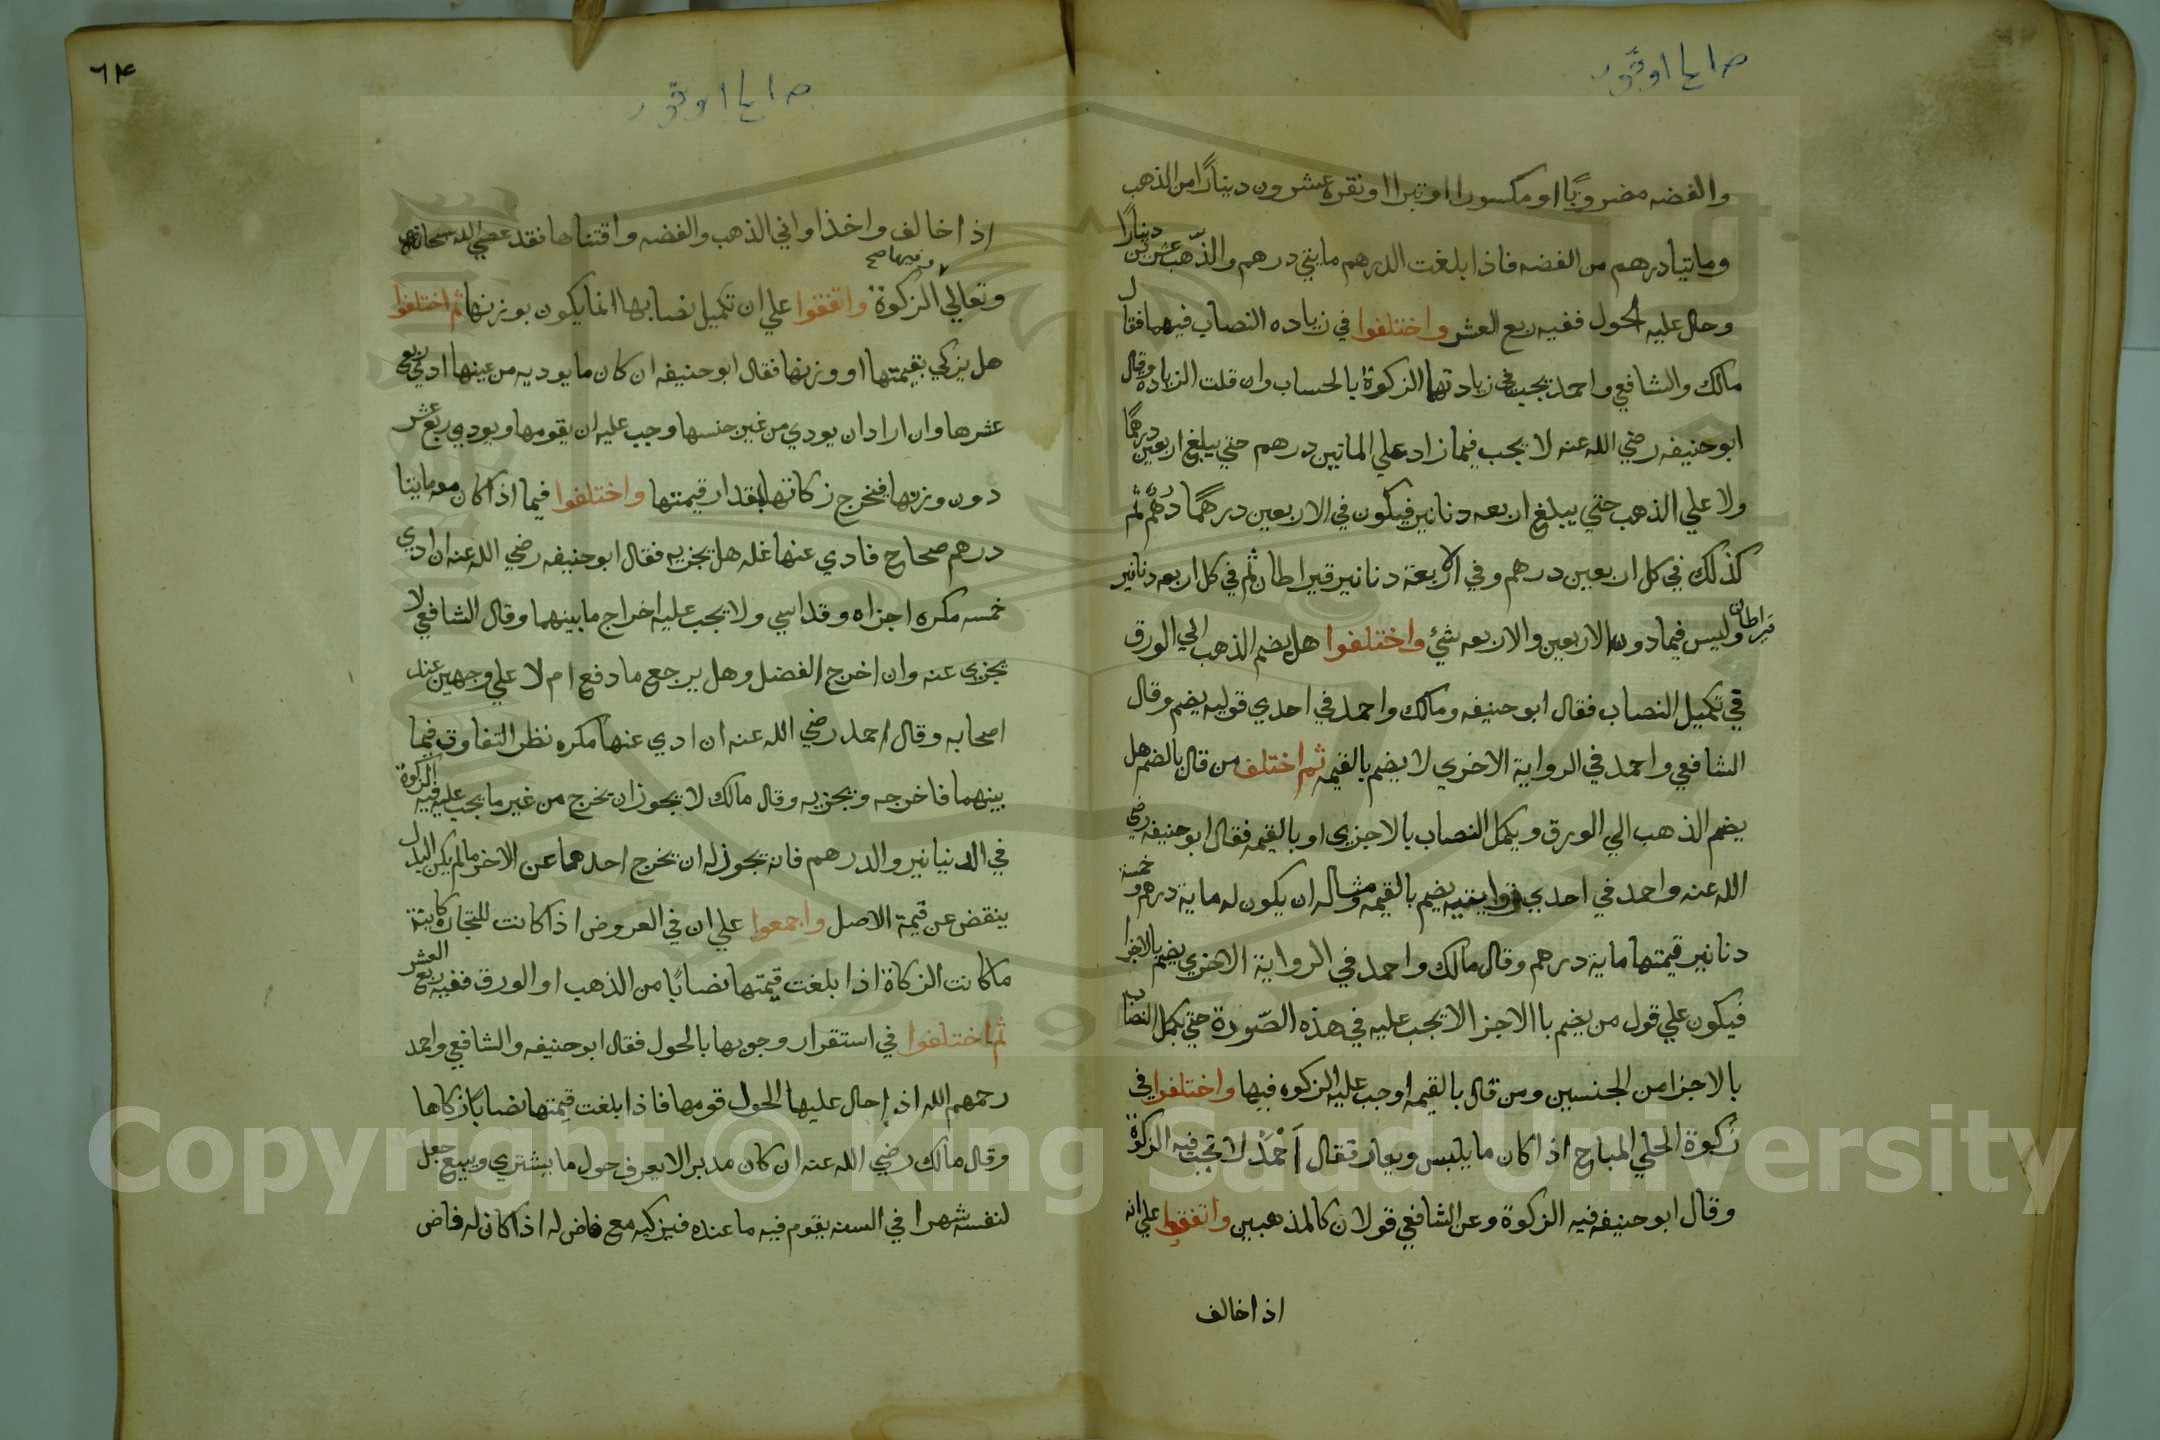 والفضه مضروبًا او مكسورا او تبرا او نقره عشرون دينارًا من الذهب
وماتيا درهم من الفضه فاذا بلغت الدرهم مايتي درهم والذّهب عشرين دينارًا
وحال عليه الحول ففيه ربع العشر واختلفوا في زياده النصاب فيهما فقال
مالك والشافعي واحمد يجب في زيادتها الزكوة بالحساب وان قلت الزياده وقال
ابو حنيفه رضي الله عنه لا يجب فيما زاد علي الماتين درهم حتي يبلغ اربعين درهمًا
ولا علي الذهب حتي يبلغ اربعه دنانير فيكون في الاربعين درهمًا درهم ثم
كذلك في كل اربعين درهم وفي الاربعة دنانير قيراطان ثم في كل اربعه دنانير
قيراطان وليس فيما دون الاربعين والاربعه شئ واختلفوا هل يضم الذهب الي الورق
في تكميل النصاب فقال ابو حنيفه ومالك واحمد في احدي قوليه يضم وقال
الشافعي واحمد في الرواية الاخري لا يضم بالقيمه ثم اختلف من قال بالضم هل
يضم الذهب الي الورق ويكمل النصاب بالاجزى او بالقيمه فقال ابو حنيفه رضي
الله عنه واحمد في احدي روايتيه يضم بالقيمه ومثاله ان يكون له ماية درهم وخمسة
دنانير قيمتها ماية درهم وقال مالك واحمد في الرواية الاخري يضم بالاجزا
فيكون علي قول من يضم باالاجزا لا يجب عليه في هذه الصّورة حتي يكمل النصاب
بالاجزا من الجنسين ومن قال بالقيمه اوجب عليه الزكوه فيها واختلفوا في
زكوة الحلي المباح اذا كان ما يلبس ويعار فقال اَحْمَدْ لا تجب فيه الزكوة
وقال ابو حنيفه فيه الزكوة وعن الشافعي قولان كالمذهبين واتفقوا علي انه
اذا خالف
٦٤
اذا خالف واخذ اواني الذهب والفضه واقتناها فقد عصي الله سبحانه
وتعالي وفيها صح الزكوة واتفقوا علي ان تكميل نصابها انما يكون بوزنها ثم اختلفوا
هل يزكي بقيمتها او وزنها فقال ابو حنيفه ان كان ما يوديه من عينها ادي ربع
عشرها وان اراد ان يودي من غير جنسها وجب عليه ان يقومها ويودي ربع عشر
دون وزنها فيخرج زكاتها بمقدار قيمتها واختلفوا فيما اذا كان معه مايتا
درهم صحاح فادي عنها غله هل يجزيه فقال ابو حنيفه رضي الله عنه ان ادي
خمسه مكره اجزاه وقد اسي ولا يجب عليه اخراج ما بينهما وقال الشافعي لا
يجزى عنه وان اخرج الفضل وهل يرجع ما دفع ام لا علي وجهين عند
اصحابه وقال احمد رضي الله عنه ان ادي عنها مكره نظر التفاوت فيما
بينهما فاخرجه ويجزيه وقال مالك لا يجوز ان يخرج من غير ما يجب عليه فيه الزكوة
في الدنيانير والدرهم فانه يجوز له ان يخرج احدهما عن الاخر ما لم يكن البدل
ينقض عن قيمة الاصل واجمعوا علي ان في العروض اذا كانت للتجارة كاينة
ما كانت الزكاة اذا بلغت قيمتها نصابًا من الذهب او الورق ففيه ربع العشر
ثم اختلفوا في استقرار وجوبها بالحول فقال ابو حنيفه والشافعي واحمد
رحمهم الله اذا حال عليها الحول قومها فاذا بلغت قيمتها نصابًا زكاها
وقال مالك رضي الله عنه ان كان مدبرا لا يعرف حول ما يشتري ويبيع جعل
لنفسه شهرا في السنه يقوم فيه ما عنده فيزكيه مع فاض له اذا كان له فاض
Copyright © King Saud University